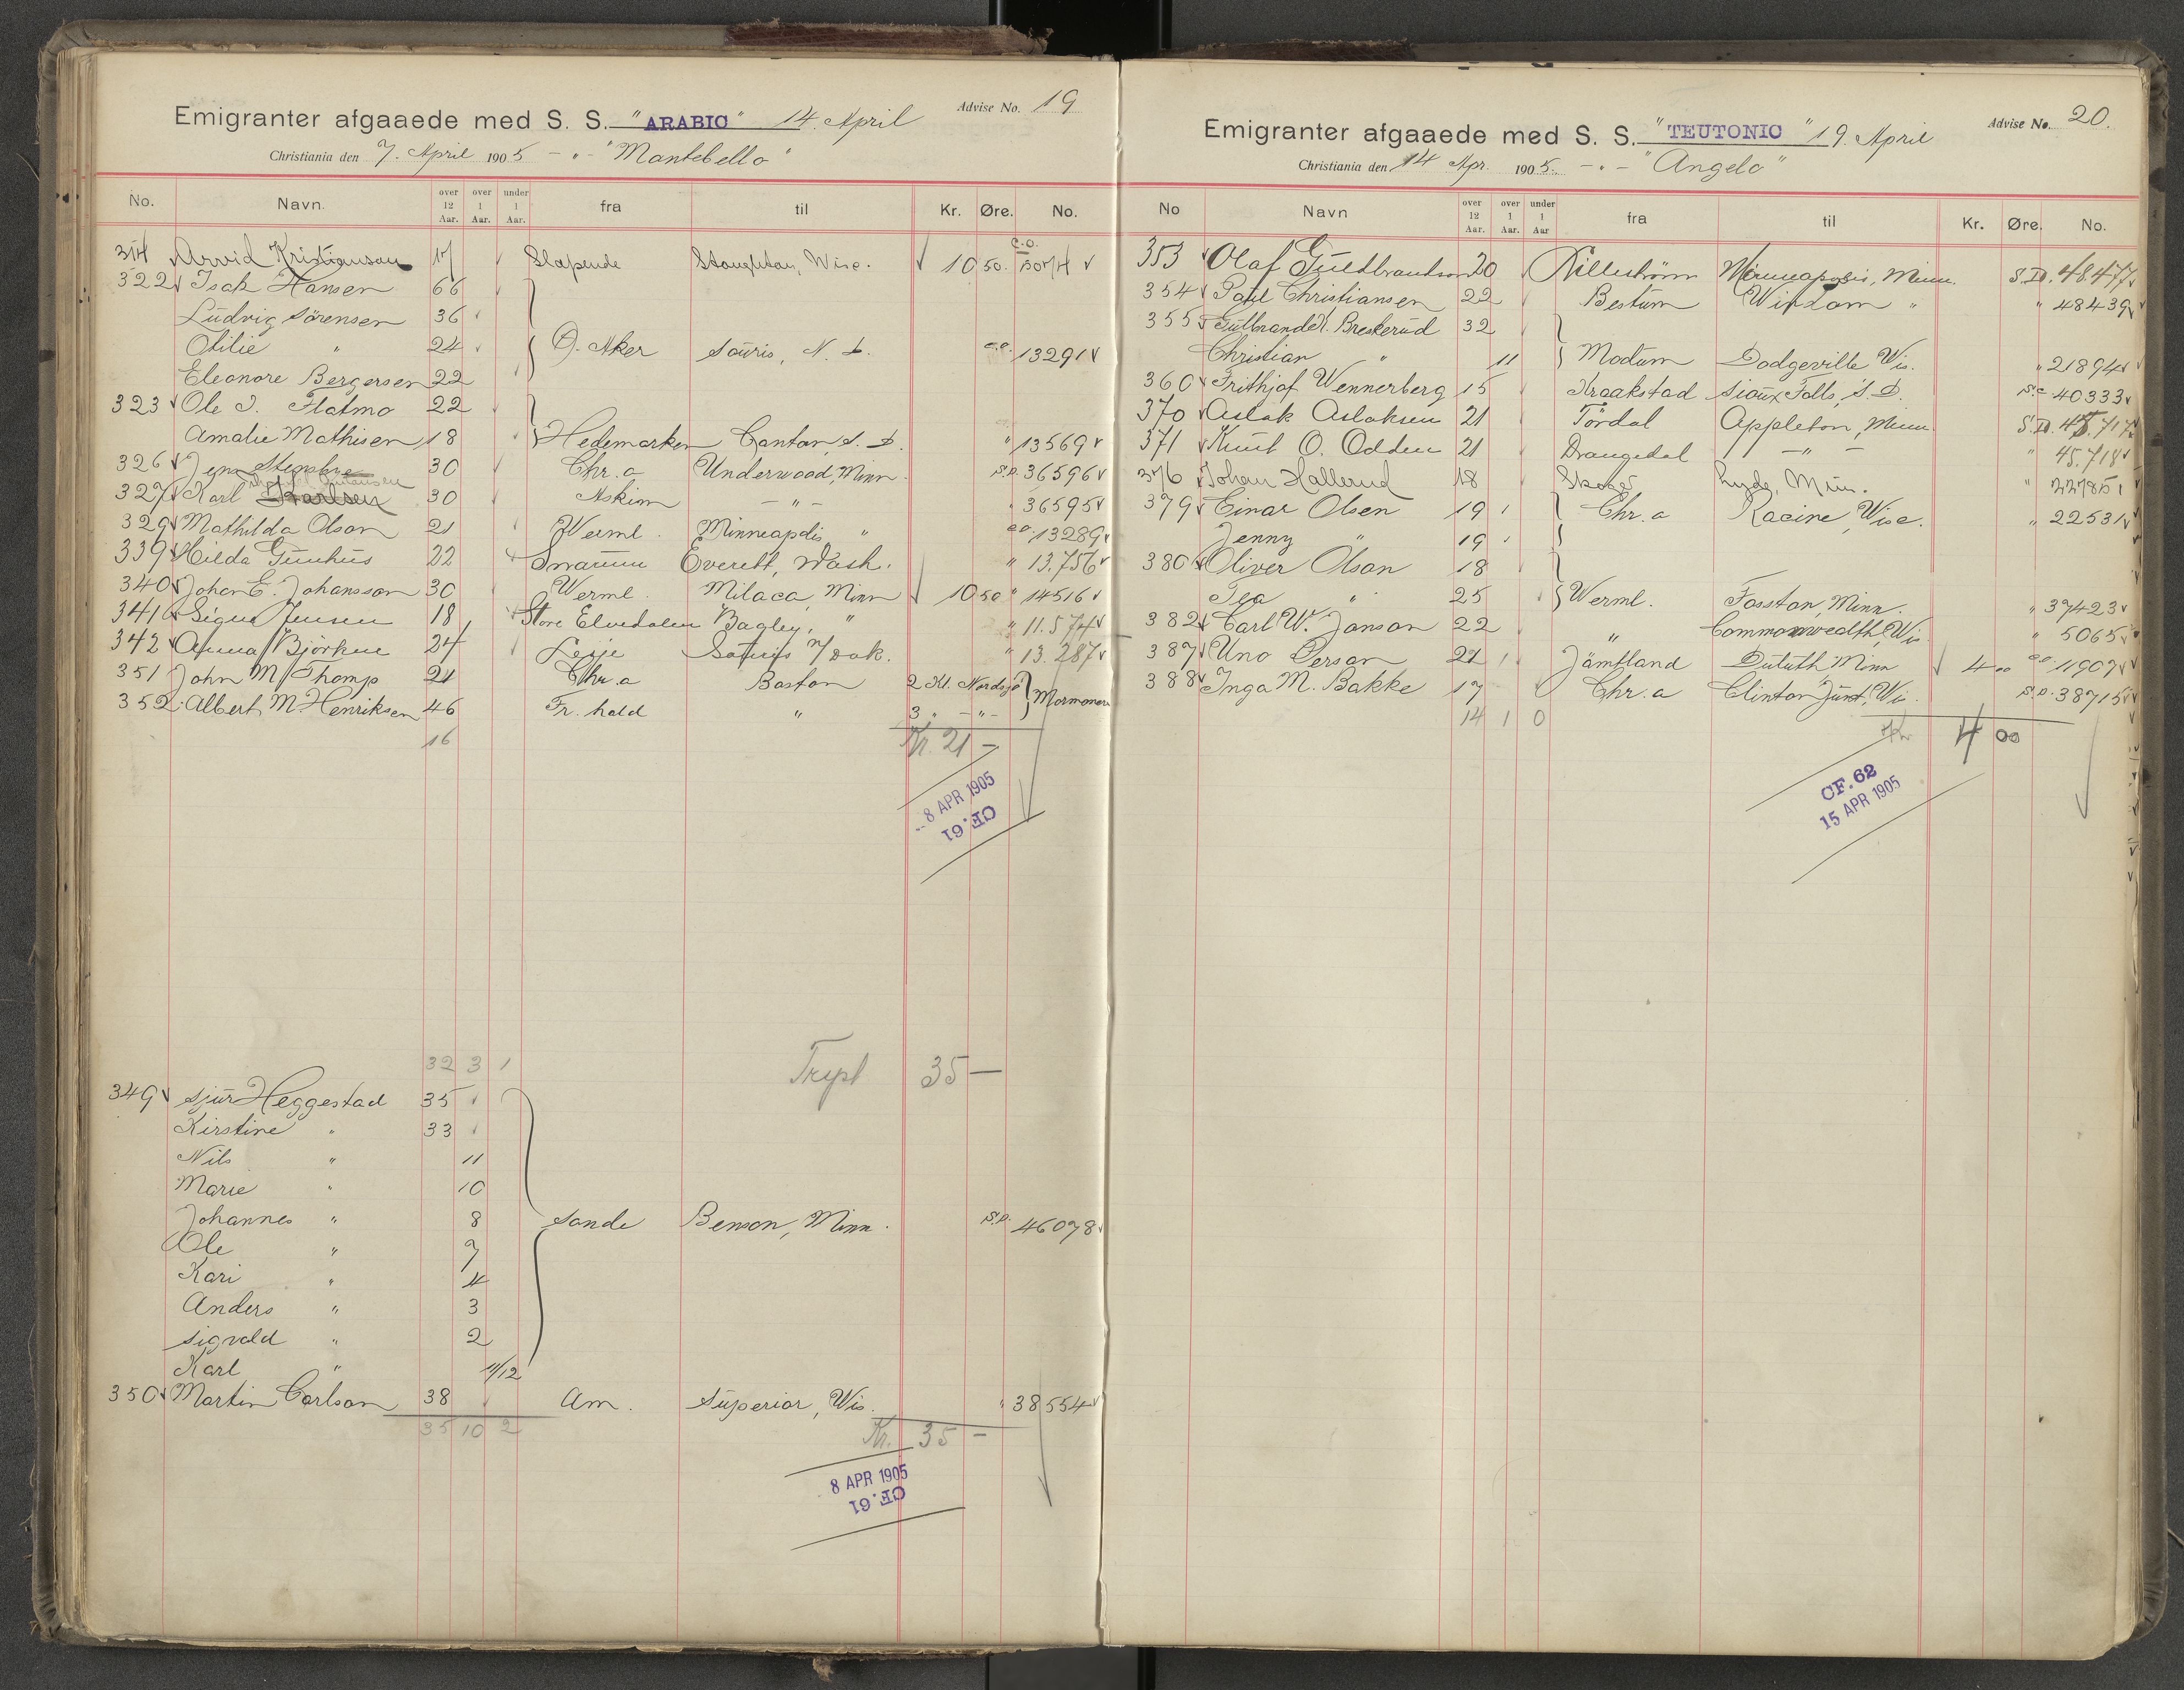 Emigranter afgaaede med S. S. "ARABIC" 14. April Advise No. 19
Christiania den 7. April 1905 - " - "Montebello"
No. Navn. over 12 Aar. over 1 Aar. under 1 Aar. fra til Kr. Øre. No.
314 Arvid Kristiansen 17 Slependе Stoughton, Wisc. 10 50. C.O.
322 Isak Hansen 66
Ludvig Sörensen 36
Otilie " 24 Ø. Aker Souris, N. D. C.O. 13291
Eleonore Bergersen 22
323 Ole I. Flatmo 22
Amalie Mathisen 18 Hedemarken Canton, S. D. " 13569
326 Jens Stensbye 30 Chr.a Underwood, Minn. S.D. 36596
327 Karl Karlsen 30 Askim - " - " 36595
329 Mathilda Olson 21 Werml. Minneapolis " C.O. 13289
339 Hilda 22 Snarum Everett, Wash. " 13.756
340 Johan E. Johansson 30 Werml. Milaca, Minn 10 50 " 14516
341 Signe Jensen 18 Store Elvedalen Bagley, " " 11.574
342 Anna Björkne 24 Lesje Souris N/Dak. " 13.287
351 John M Thomp 21 Chr.a Boston 2 Kl. Nordsjø Mormoner
352 Albert M. Henriksen 46 Fr. hald " 3 " - " -
16 Kr. 21 -
8 APR 1905
CF. 61
32 3 1 Trspt 35 -
349 Sjur Heggestad 35
Kirstine " 33
Nils " 11
Marie " 10
Johannes " 8 Sande Benson, Minn. S.D. 46078
Ole " 7
Kari " 4
Anders " 3
Sigvald " 2
Karl " 11/12
350 Martin Carlson 38 Am. Superior, Wis. " 38554
35 10 2 Kr. 35 -
8 APR 1905
CF. 61
Emigranter afgaaede med S. S. "TEUTONIC" 19. April Advise No. 20.
Christiania den 14 Apr. 1905. - " - "Angelo"
No Navn over 12 Aar. over 1 Aar. under 1 Aar fra til Kr. Øre. No.
353 Olaf Guldbrandson 20 Lilleström Minneapolis, Minn. S.D. 48477
354 Paul Christiansen 22 Bestum Windom " " 48439
355 Gulbrand Breskerud 32
Christian " 11 Modum Dodgeville Wis. " 21894
360 Frithjof Wennerberg 15 Kraakstad Sioux Falls, S. D. 40333
370 Aslak Aslaksen 21 Tördal Appleton, Minn S.D. 45.717
371 Knut O. Odden 21 Drangedal - " - " 45.718
376 Johan Hallerud 18 Skoger Lyde, Min. "
379 Einar Olsen 19 Chr.a Racine, Wisc. " 22531
Jenny " 19
380 Oliver Olson 18
Tea " 25 Werml. Fosston, Minn. " 37423
382 Carl W. Janson 22 " Commonwealth, Wis " 5065
387 Uno Person 21 Jämtland Duluth Minn 4 00 C.O. 11907
388 Inga M. Bakke 17 Chr.a Clinton Junct, Wis. S.D. 38715
14 1 0 Kr 4 00
CF. 62
15 APR 1905